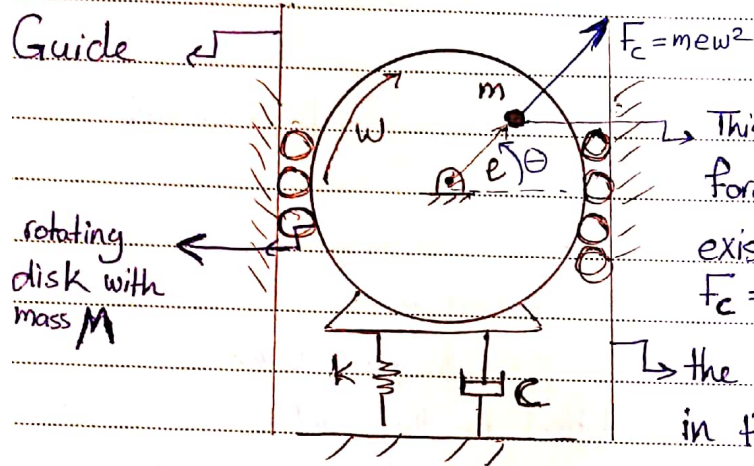 Guide
F_c = meω²
m
This
ω
for
e θ
exis
rotating
disk with
mass M
F_c =
k
C
the
in t